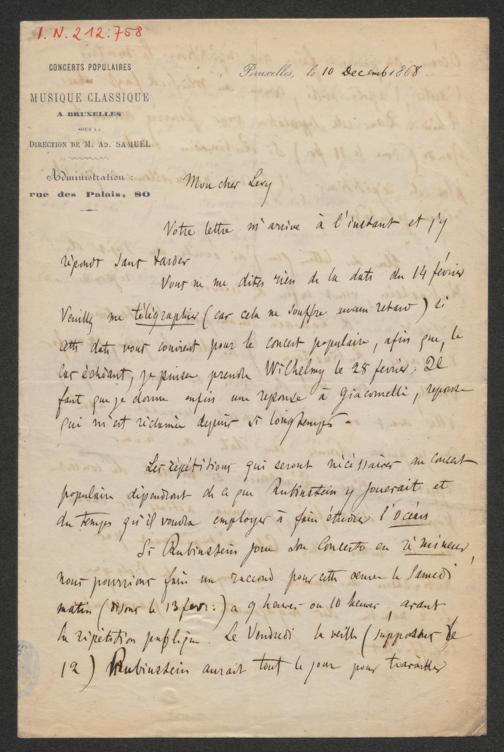 I.N. 212.758
CONCERTS POPULAIRES
MUSIQUE CLASSIQUE
A BRUXELLES
SOUS LA
DIRECTION DE M. AD. SAMUEL
Administration :
rue des Palais, 80
Bruxelles, le 10 Decemb 1868
Mon cher Levy
Votre lettre m'arrive à l'instant et j'y
réponds sans tarder
Vous ne me dites rien de la date du 14 février
Veuillez me télégraphier (car cela ne souffre aucun retard) si
cette date vous convient pour le concert populaire, afin que, le
cas échéant, je puisse prendre Wilhelmy le 28 février. Il
faut que je donne enfin une réponse à Giacomelli, réponse
qui m'est réclamée depuis si longtemps.
Les répétitions qui seront nécessaires au Concert
populaire dépendront de ce que Rubinstein y jouerait et
du temps qu'il voudra employer à faire étudier l'Ocean
Si Rubinstein joue son Concerto en ré mineur,
nous pourrions faire un raccord pour cette œuvre le Samedi
matin (disons le 13 févr:) à 9 heures ou 10 heures, avant
la répétition publique. Le Vendredi la veille (supposons le
12) Rubinstein aurait tout le jour pour travailler